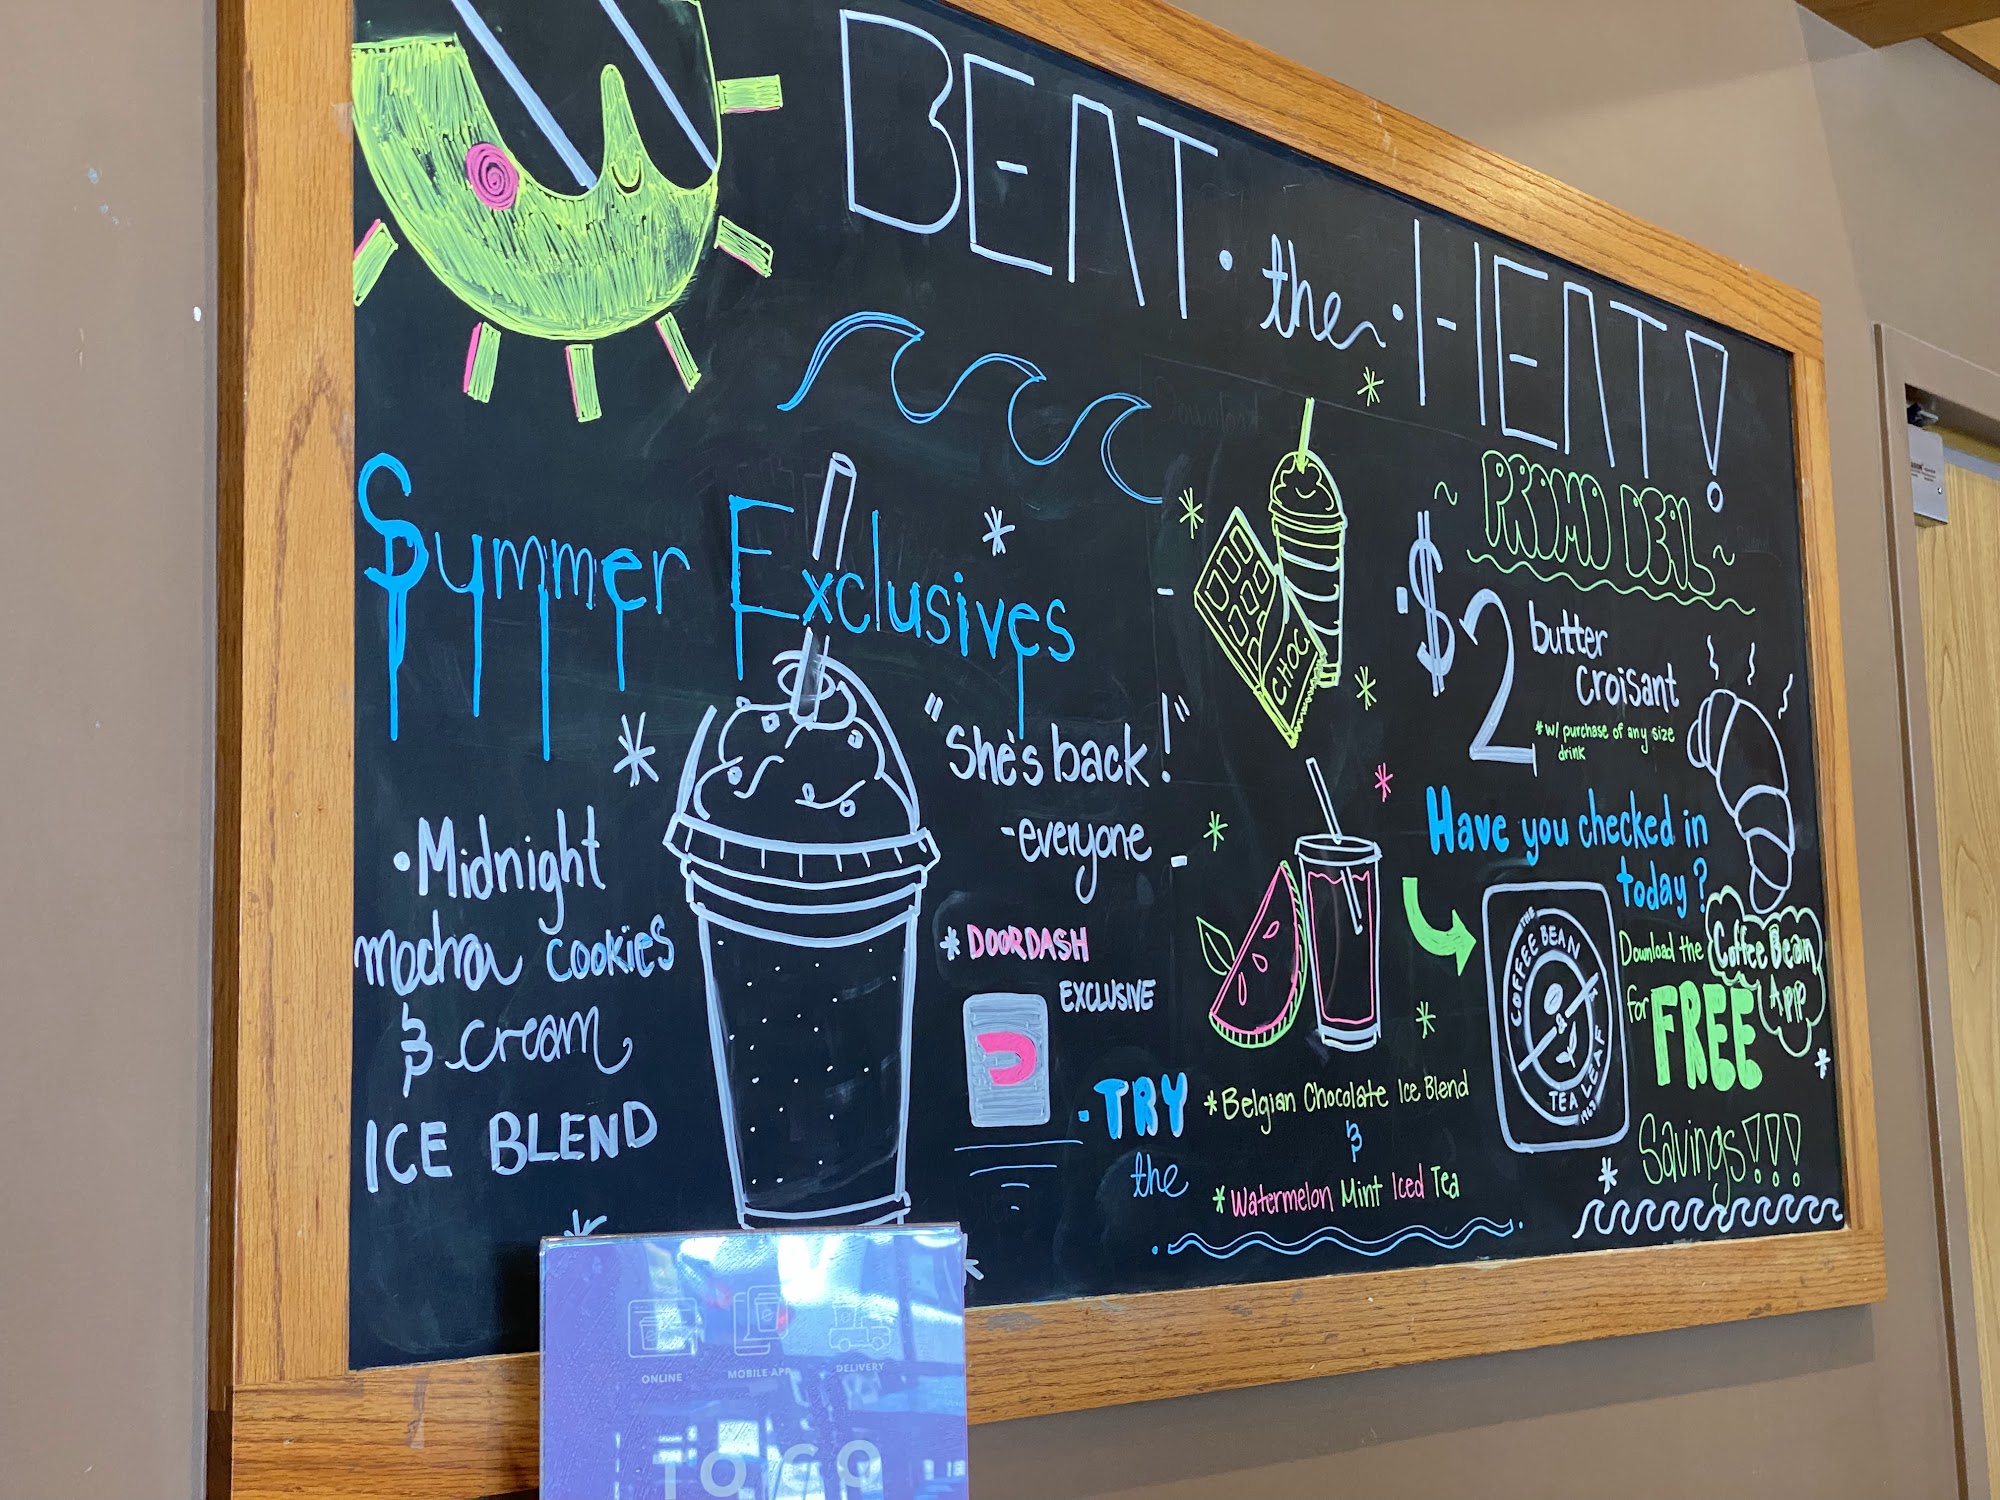 BEAT · the · HEAT!
Summer Exclusives
• Midnight
mocha cookies
& cream
ICE BLEND
"She's back!"
-everyone
* DOORDASH
EXCLUSIVE
CHOC
• TRY
the
* Belgian Chocolate Ice Blend
&
* Watermelon Mint Iced Tea
~ PROMO DEAL ~
$2 butter
croisant
* w/ purchase of any size
drink
Have you checked in
today?
THE
COFFEE BEAN
&
TEA LEAF
1963
Download the Coffee Bean
App
for FREE
Savings!!!
ONLINE
MOBILE APP
DELIVERY
TO GO